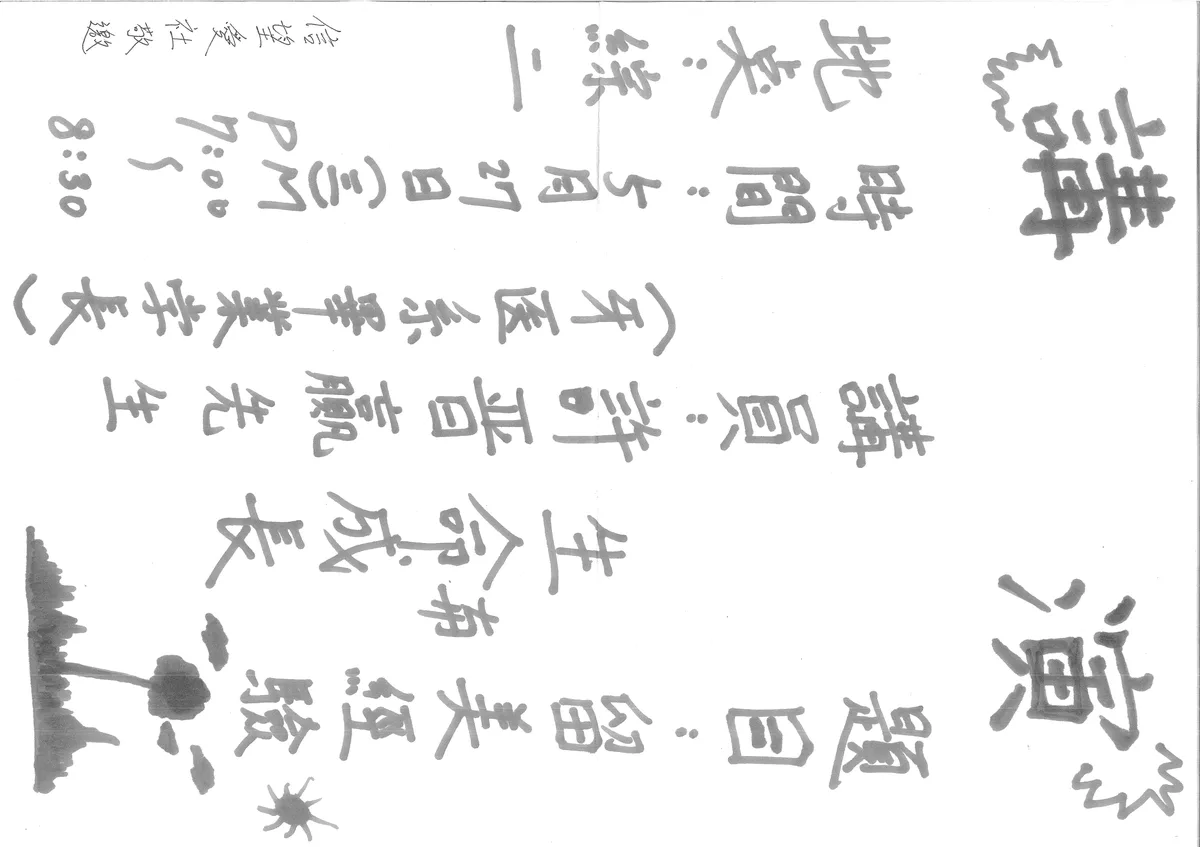 講演
題目：留美經驗
有
生命成長
講員：許晋贏先生
（牙医系畢業学長）
時間：5月27日(三) PM 7:00～8:30
地点：綜二
信望愛社敬邀